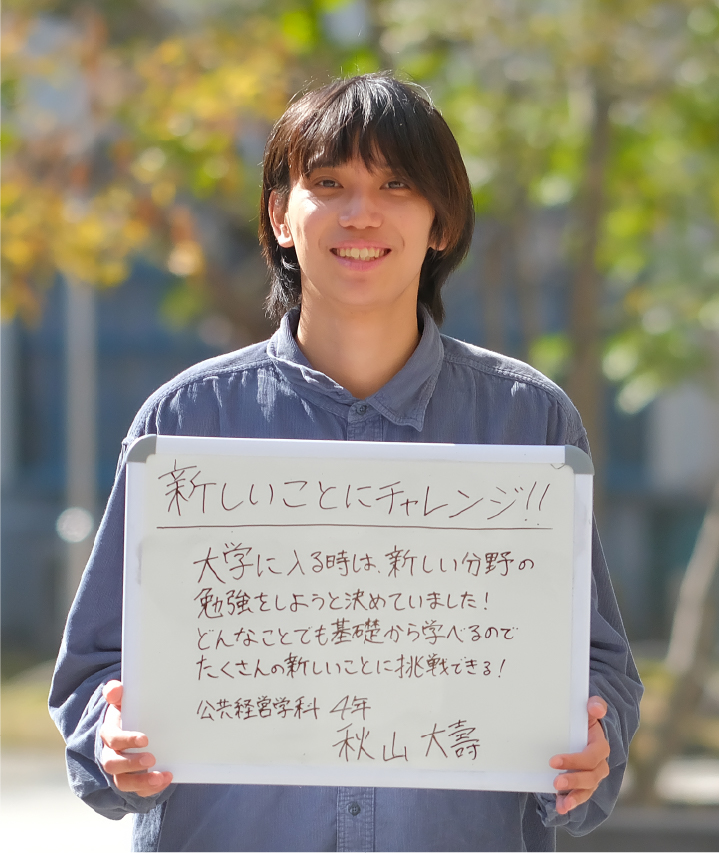 新しいことにチャレンジ!!
大学に入る時は、新しい分野の
勉強をしようと決めていました!
どんなことでも基礎から学べるので
たくさんの新しいことに挑戦できる!
公共経営学科 4年
秋山 大壽